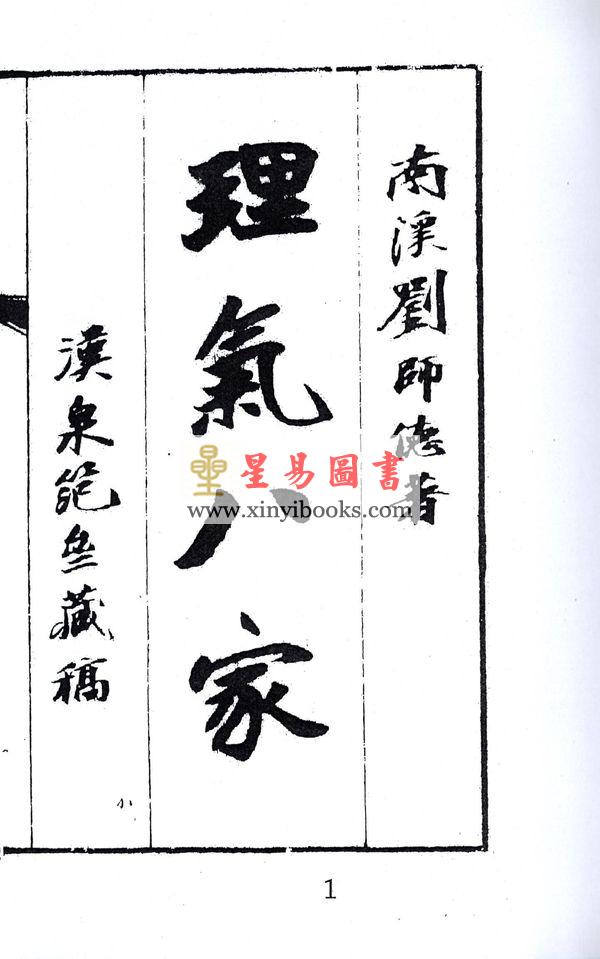 南溪劉師德著
理氣八家
漢泉笵壘藏稿
星易圖書
www.xinyibooks.com
1